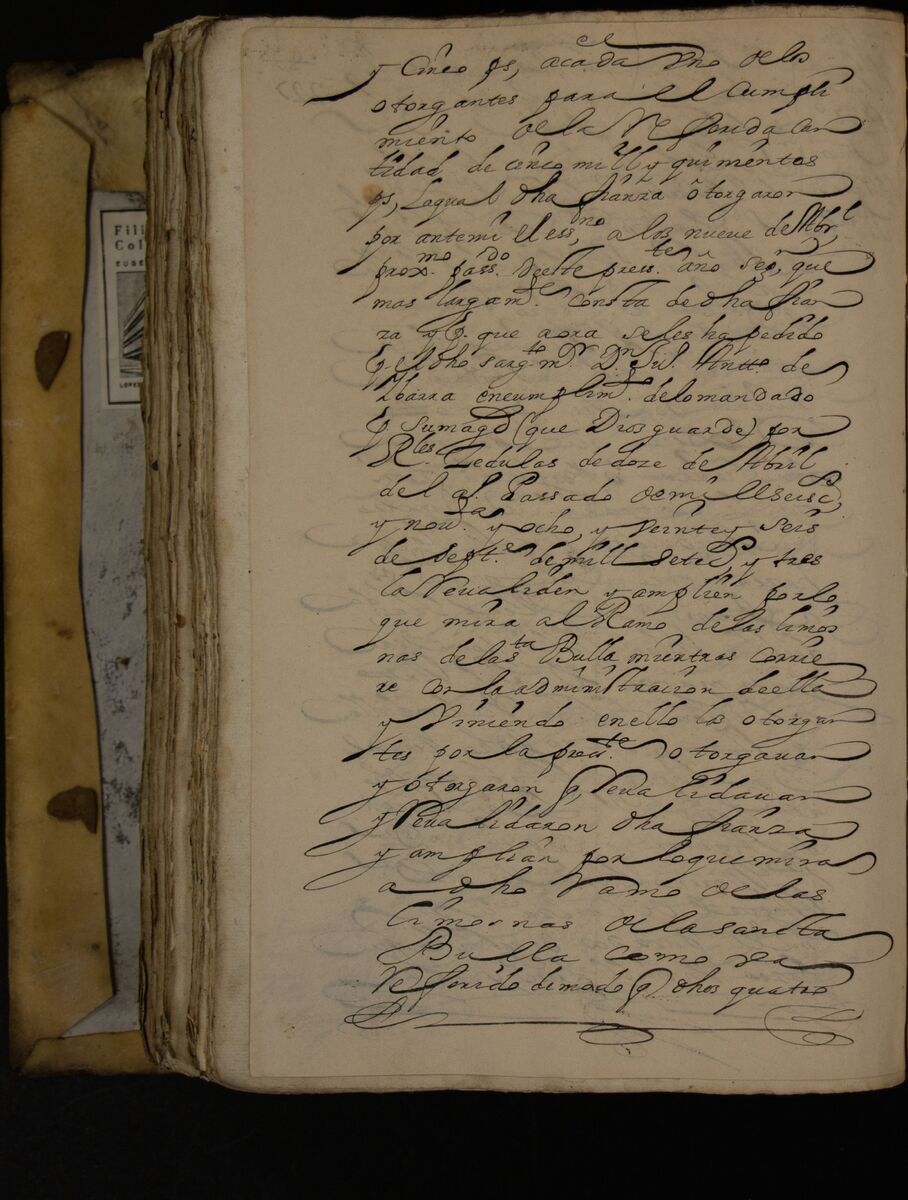 y Cinco ps, acada Vno delos
otorgantes para el Cumpli
miento dela Referida can
tidad de cinco mill y quinientos
ps, Laqual dha fianza otorgaron
por antemi el essno, a los nueve de Abrl
proxmo passdo deeste preste año segn, que
mas largamte Consta de dha fian
za y q. que aora seles ha pedido
q. el dho sargto mr Dn Jul. Antto de
Ybarra encumplimto delomandado
q. sumagd (que Dios guarde) por
Rles Zedulas de doze de Abril
del al. Passado de mill seiscs,
y nouta y ocho, y Veinte y seis
de Septe de mill setecs, y tres
la Reualiden y amplien porlo
que mira al Ramo de las limos
nas de la sta Bulla mientras corrie
re con la administracion deella
y Viniendo enello los otorgan
tes por la preste otorgauan
y otorgaron q, Reualidauan
y Reualidaron dha fianza
y amplian por loque mira
a dho Ramo de las
limosnas de la sancta
Bulla como va
Referido demodo q. dhos quatro
Fili
Col
EUGE
LOPE